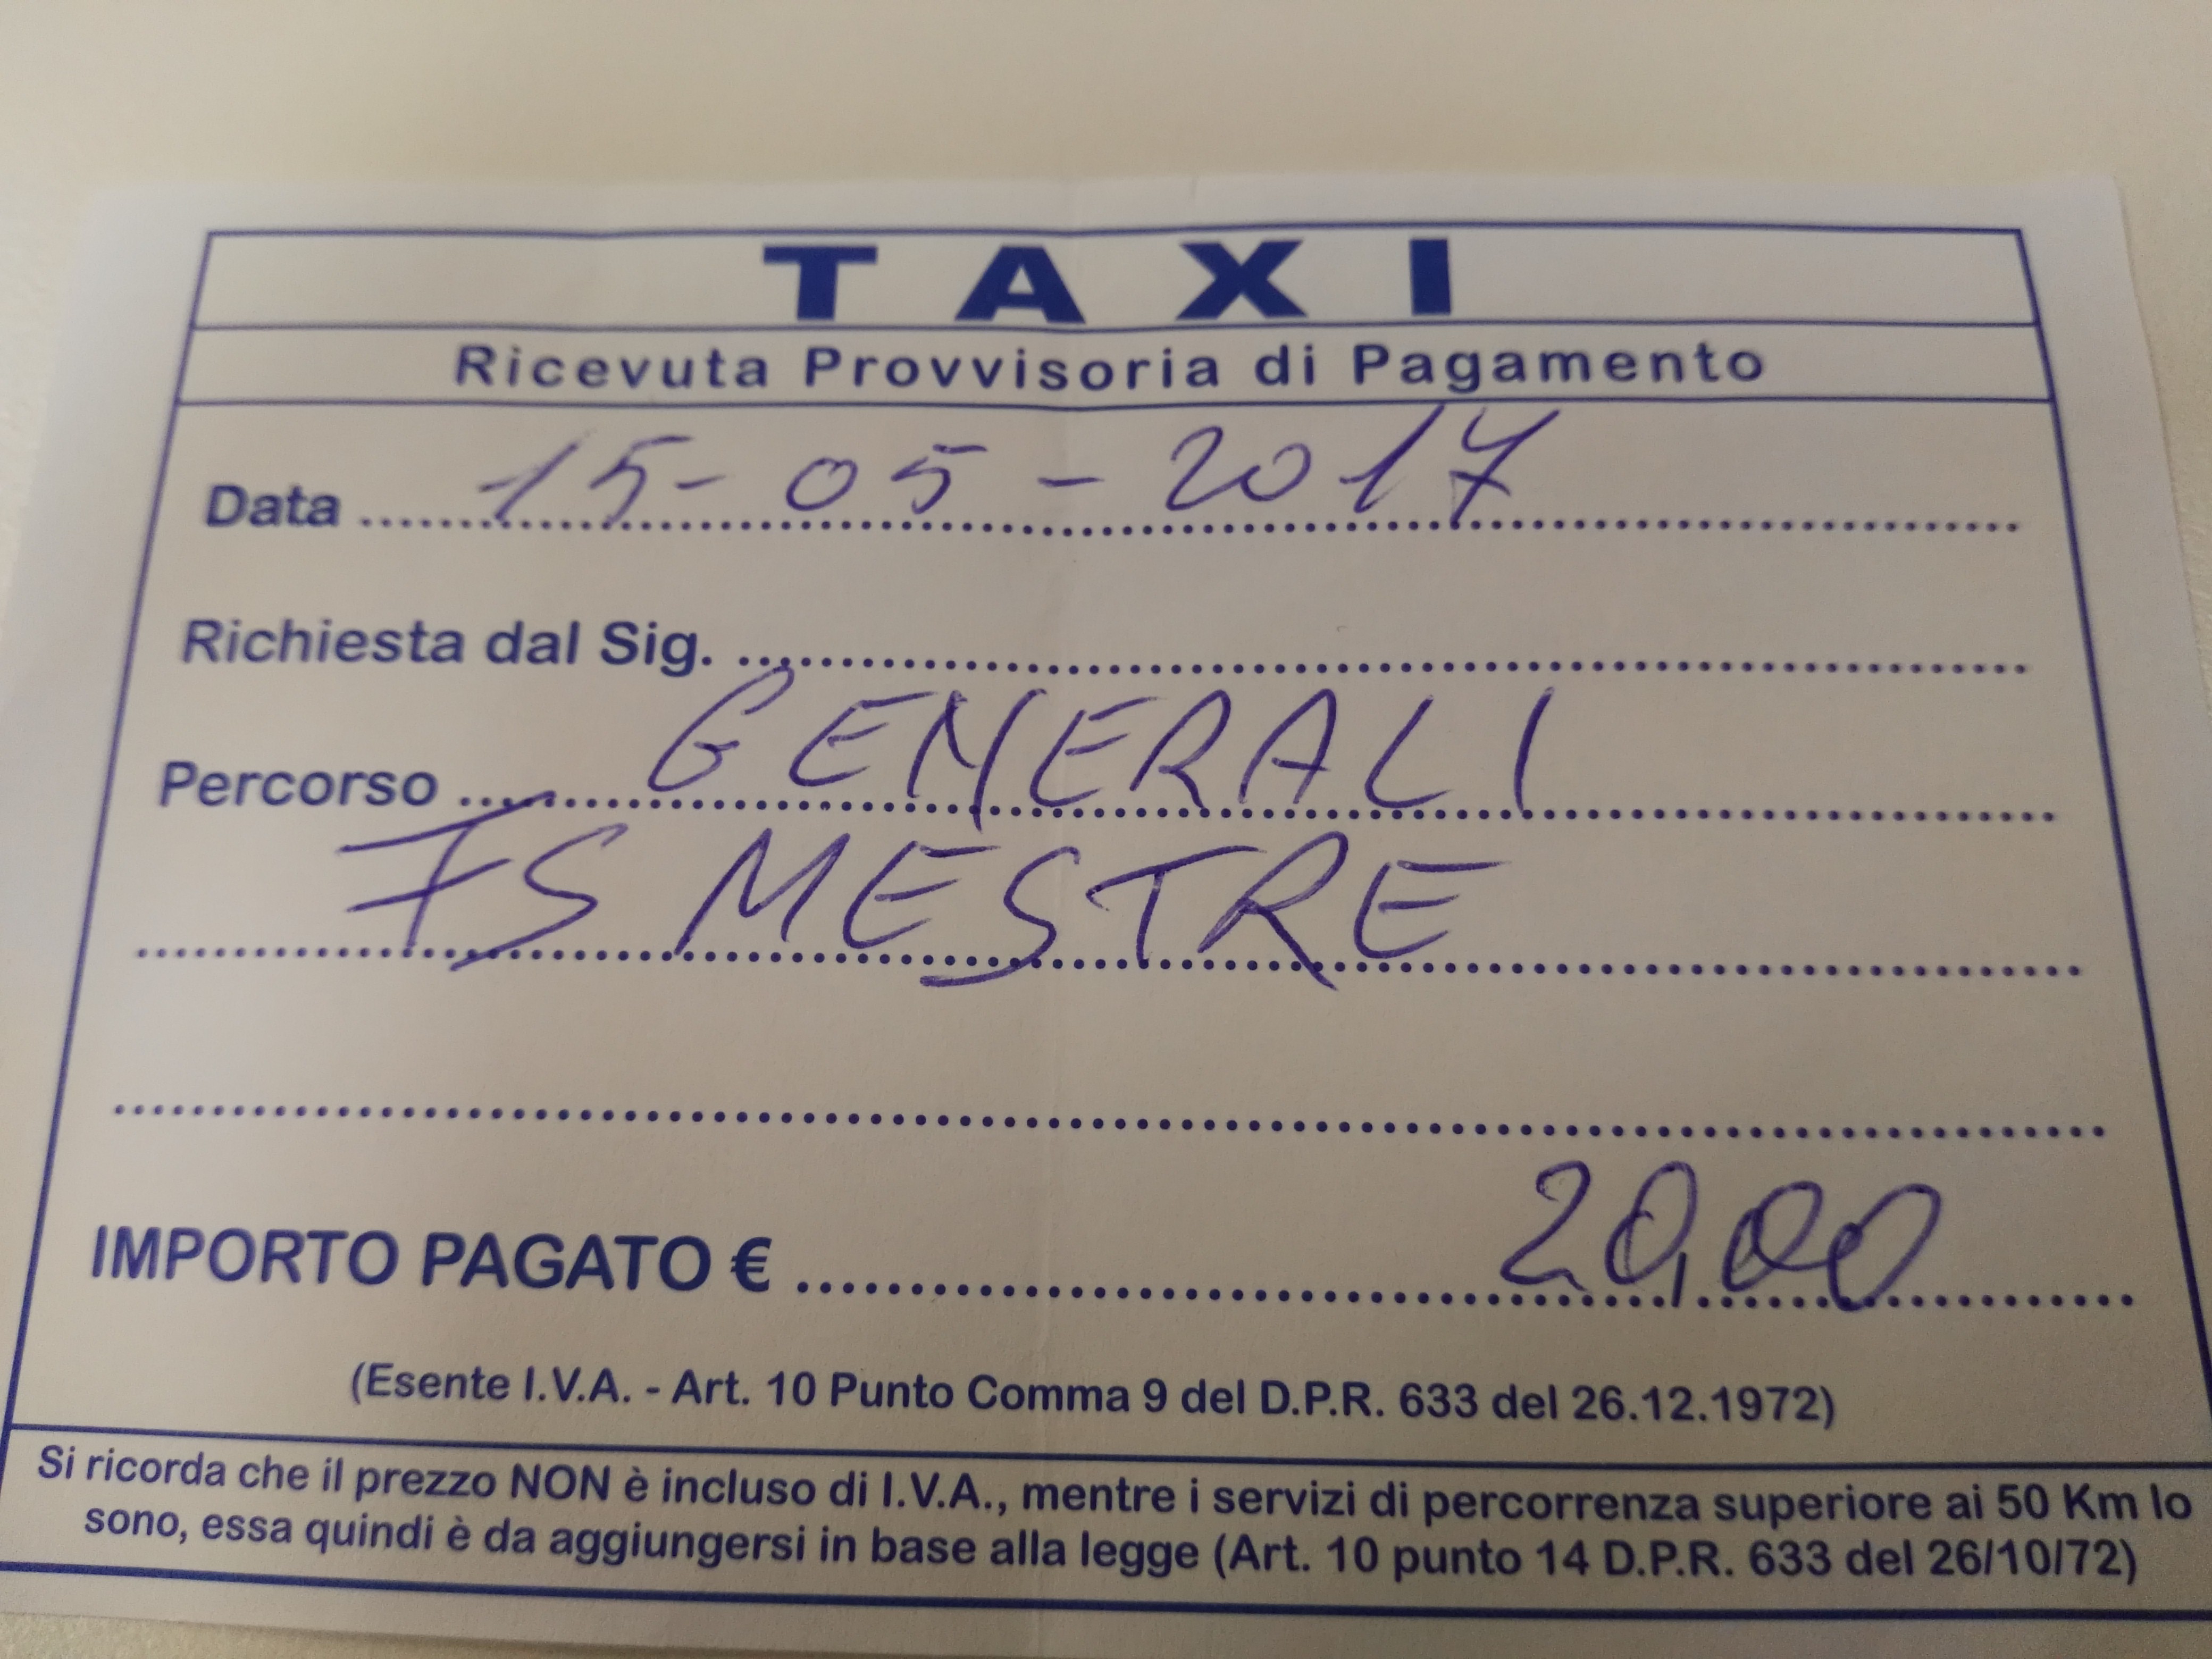 TAXI
Ricevuta Provvisoria di Pagamento
Data 15-05-2017
Richiesta dal Sig.
Percorso GENERALI
FS MESTRE
IMPORTO PAGATO € 20,00
(Esente I.V.A. - Art. 10 Punto Comma 9 del D.P.R. 633 del 26.12.1972)
Si ricorda che il prezzo NON è incluso di I.V.A., mentre i servizi di percorrenza superiore ai 50 Km lo
sono, essa quindi è da aggiungersi in base alla legge (Art. 10 punto 14 D.P.R. 633 del 26/10/72)